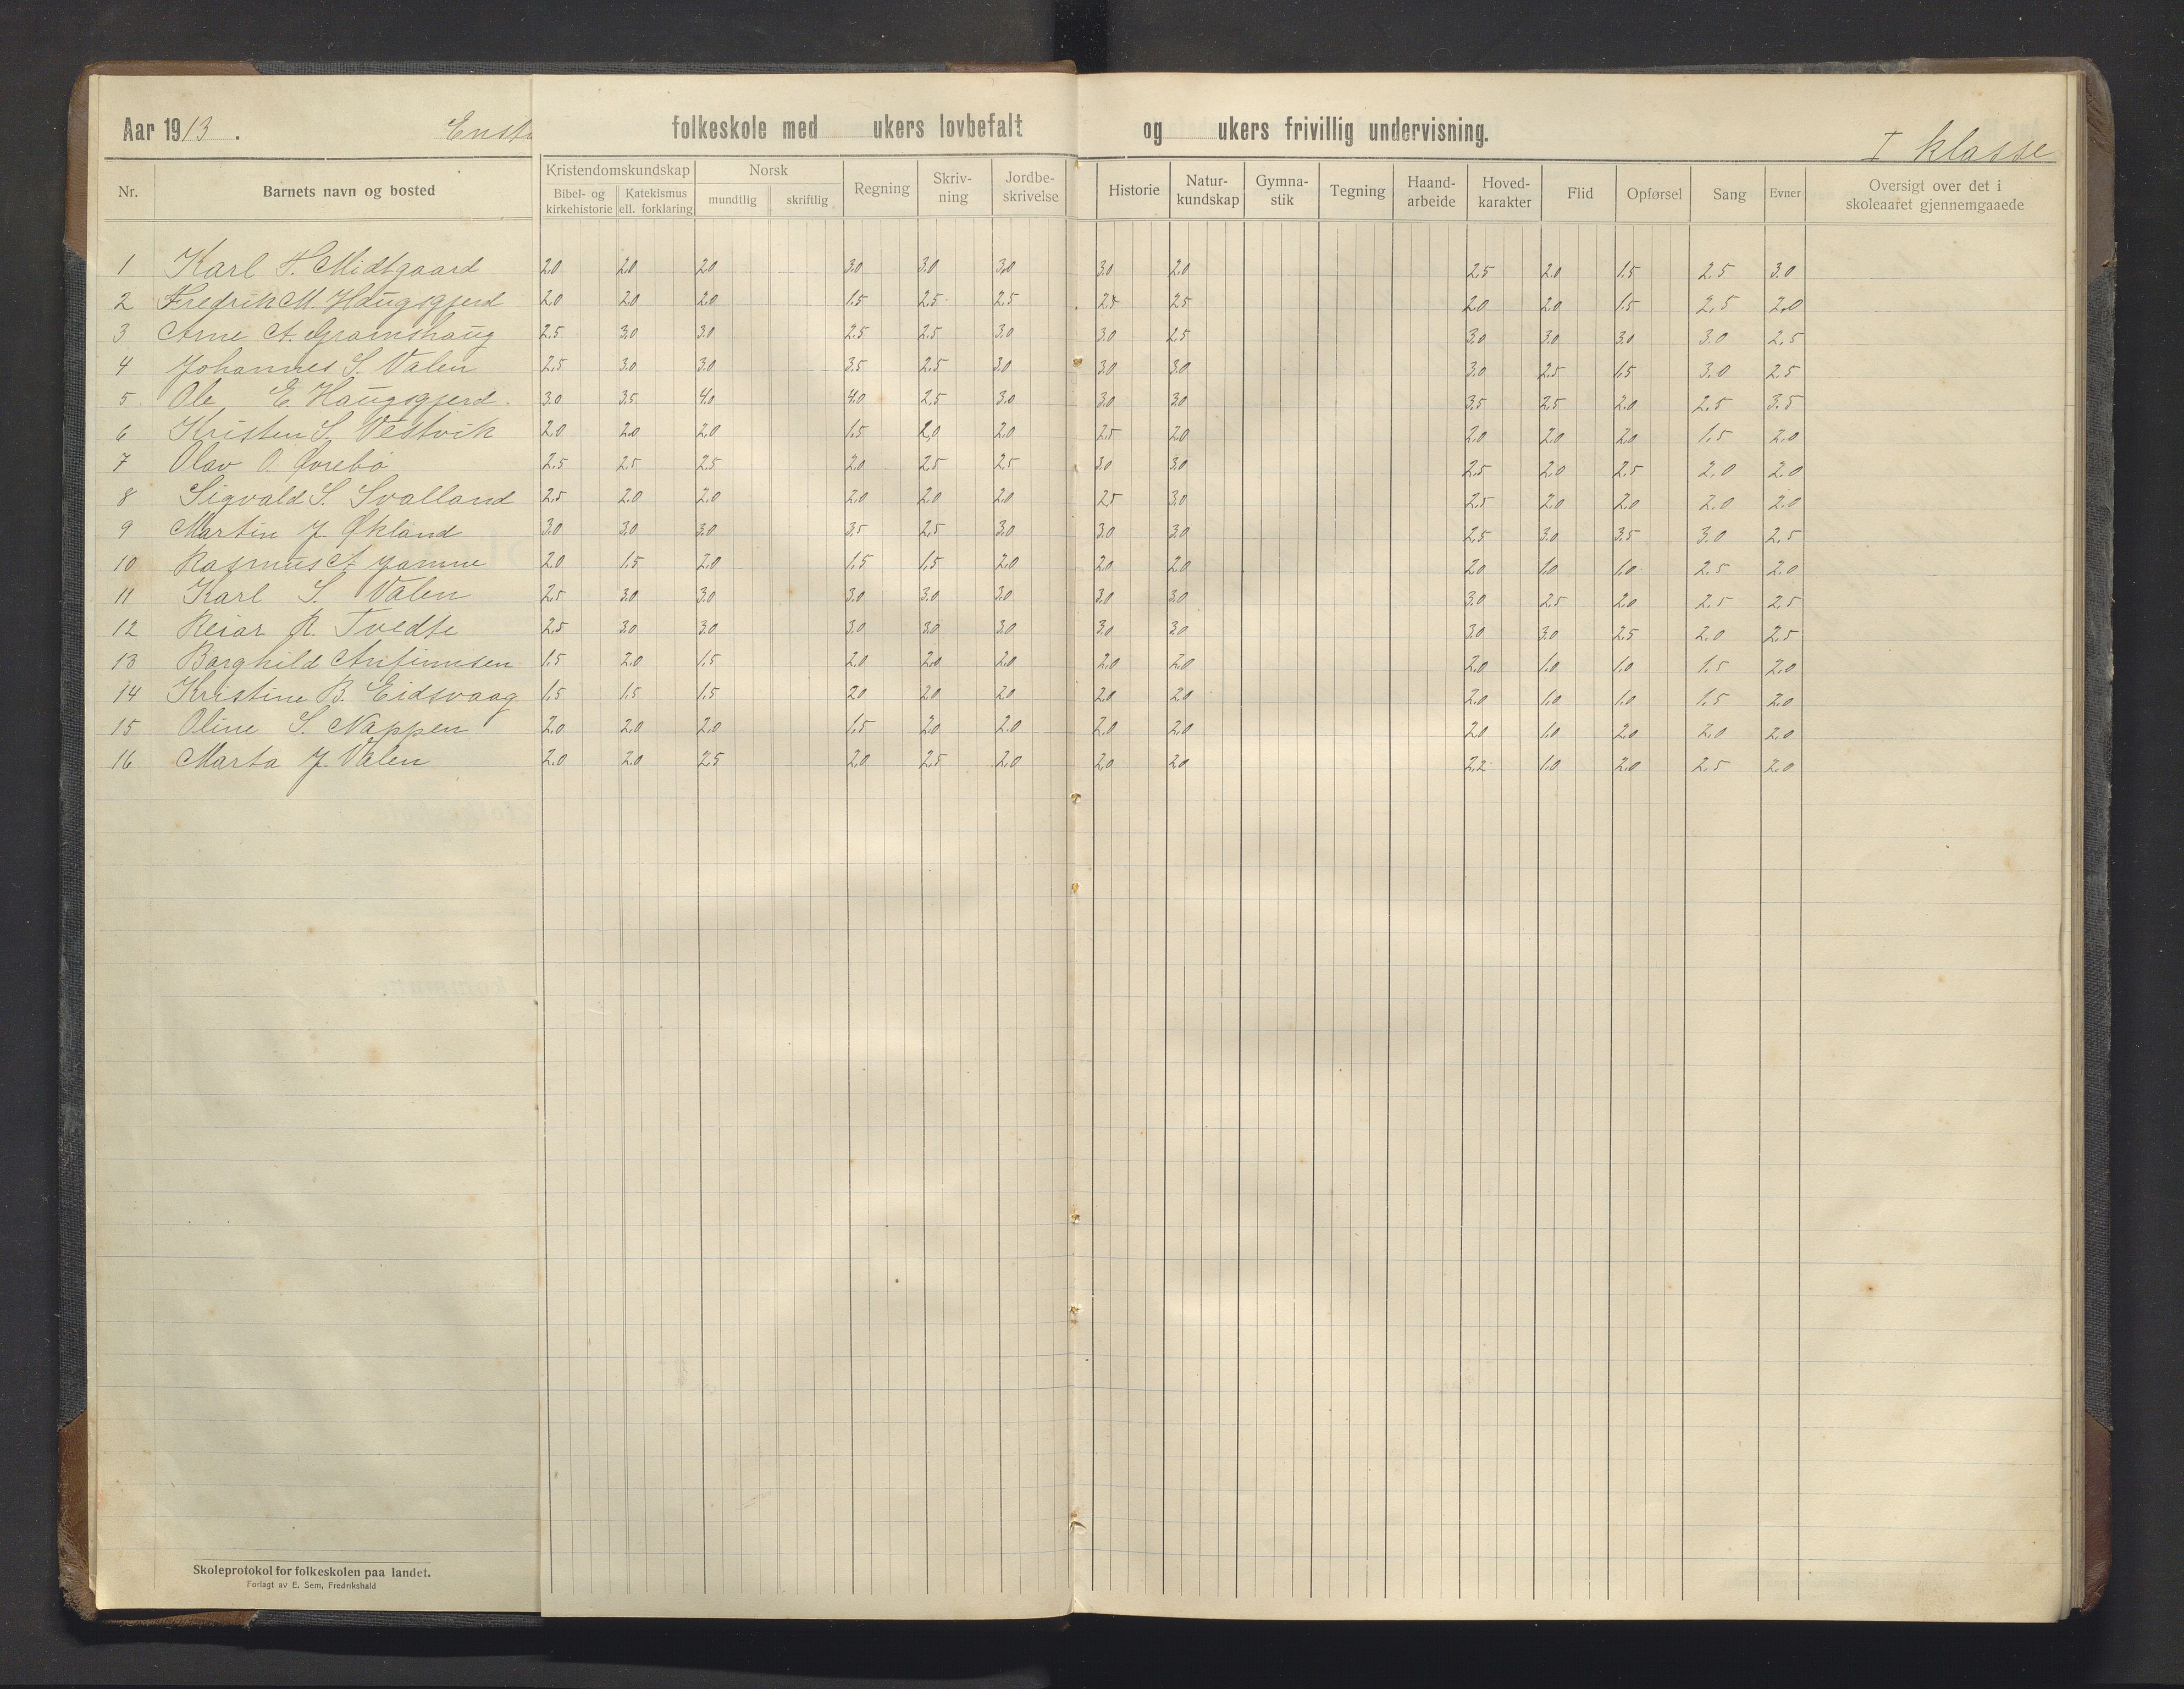 Aar 1913. Enst folkeskole med ukers lovbefalt og ukers frivillig undervisning.
I klasse
Nr. Barnets navn og bosted Kristendomskundskap Bibel- og kirkehistorie Katekismus ell. forklaring Norsk mundtlig skriftlig Regning Skriv-ning Jordbe-skrivelse Historie Natur-kundskap Gymna-stik Tegning Haand-arbeide Hoved-karakter Flid Opførsel Sang Evner Oversigt over det i skoleaaret gjennemgaaede
1 Karl S. Midtgaard 2.0 2.0 2.0 3.0 3.0 3.0 3.0 2.0 2.5 2.0 1.5 2.5 3.0
2 Fredrik M. Haugsgjerd 2.0 2.0 2.0 1.5 2.5 2.5 2.5 2.5 2.0 2.0 1.5 2.5 2.0
3 Arne A. Gramshaug 2.5 3.0 3.0 2.5 2.5 3.0 3.0 2.5 3.0 3.0 3.0 3.0 2.5
4 Johannes S. Valen 2.5 3.0 3.0 3.5 2.5 3.0 3.0 3.0 3.0 2.5 1.5 3.0 2.5
5 Ole E. Haugsgjerd. 3.0 3.5 4.0 4.0 2.5 3.0 3.0 3.0 3.5 2.5 2.0 2.5 3.5
6 Kristen S. Vestvik 2.0 2.0 2.0 1.5 2.0 2.0 2.5 2.0 2.0 2.0 2.0 1.5 2.0
7 Olav O. Øvrebø 2.5 2.5 2.5 2.0 2.5 2.5 3.0 3.0 2.5 2.0 2.5 2.0 2.0
8 Sigvald S. Svalland 2.5 2.0 2.0 2.0 2.0 2.0 2.5 3.0 2.5 2.0 2.0 2.0 2.0
9 Martin J. Økland 3.0 3.0 3.0 3.5 2.5 3.0 3.0 3.0 2.5 3.0 3.5 3.0 2.5
10 Rasmus A Jamne 2.0 1.5 2.0 1.5 1.5 2.0 2.0 2.0 2.0 1.0 1.0 2.5 2.0
11 Karl S. Valen 2.5 3.0 3.0 3.0 3.0 3.0 3.0 3.0 3.0 2.5 2.0 2.5 2.5
12 Reiar R. Tvedte 2.5 3.0 3.0 3.0 3.0 3.0 3.0 3.0 3.0 3.0 2.5 2.0 2.5
13 Borghild Anfinnsen 1.5 2.0 1.5 2.0 2.0 2.0 2.0 2.0 2.0 1.0 1.0 1.5 2.0
14 Kristine B. Eidsvaag 1.5 1.5 1.5 2.0 2.0 2.0 2.0 2.0 2.0 1.0 1.0 1.5 2.0
15 Oline S. Nappen 2.0 2.0 2.0 1.5 2.0 2.0 2.0 2.0 2.0 1.0 2.0 2.0 2.0
16 Marta J. Valen 2.0 2.0 2.5 2.0 2.5 2.0 2.0 2.0 2.2 1.0 2.0 2.5 2.0
Skoleprotokol for folkeskolen paa landet.
Forlagt av E. Sem, Fredrikshald